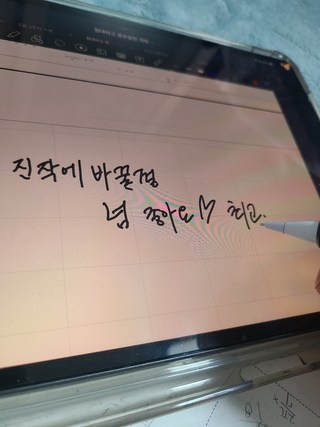 진작에 바꿀껄
넘 좋아요♡ 최고.